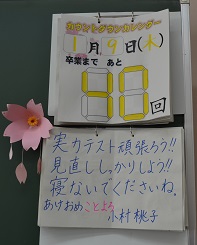 カウントダウンカレンダー
1月9日(木)
卒業まで あと
40回
実力テスト頑張ろう!!
見直ししっかりしよう!!
寝ないでくださいね。
あけおめことよろ
小村桃子